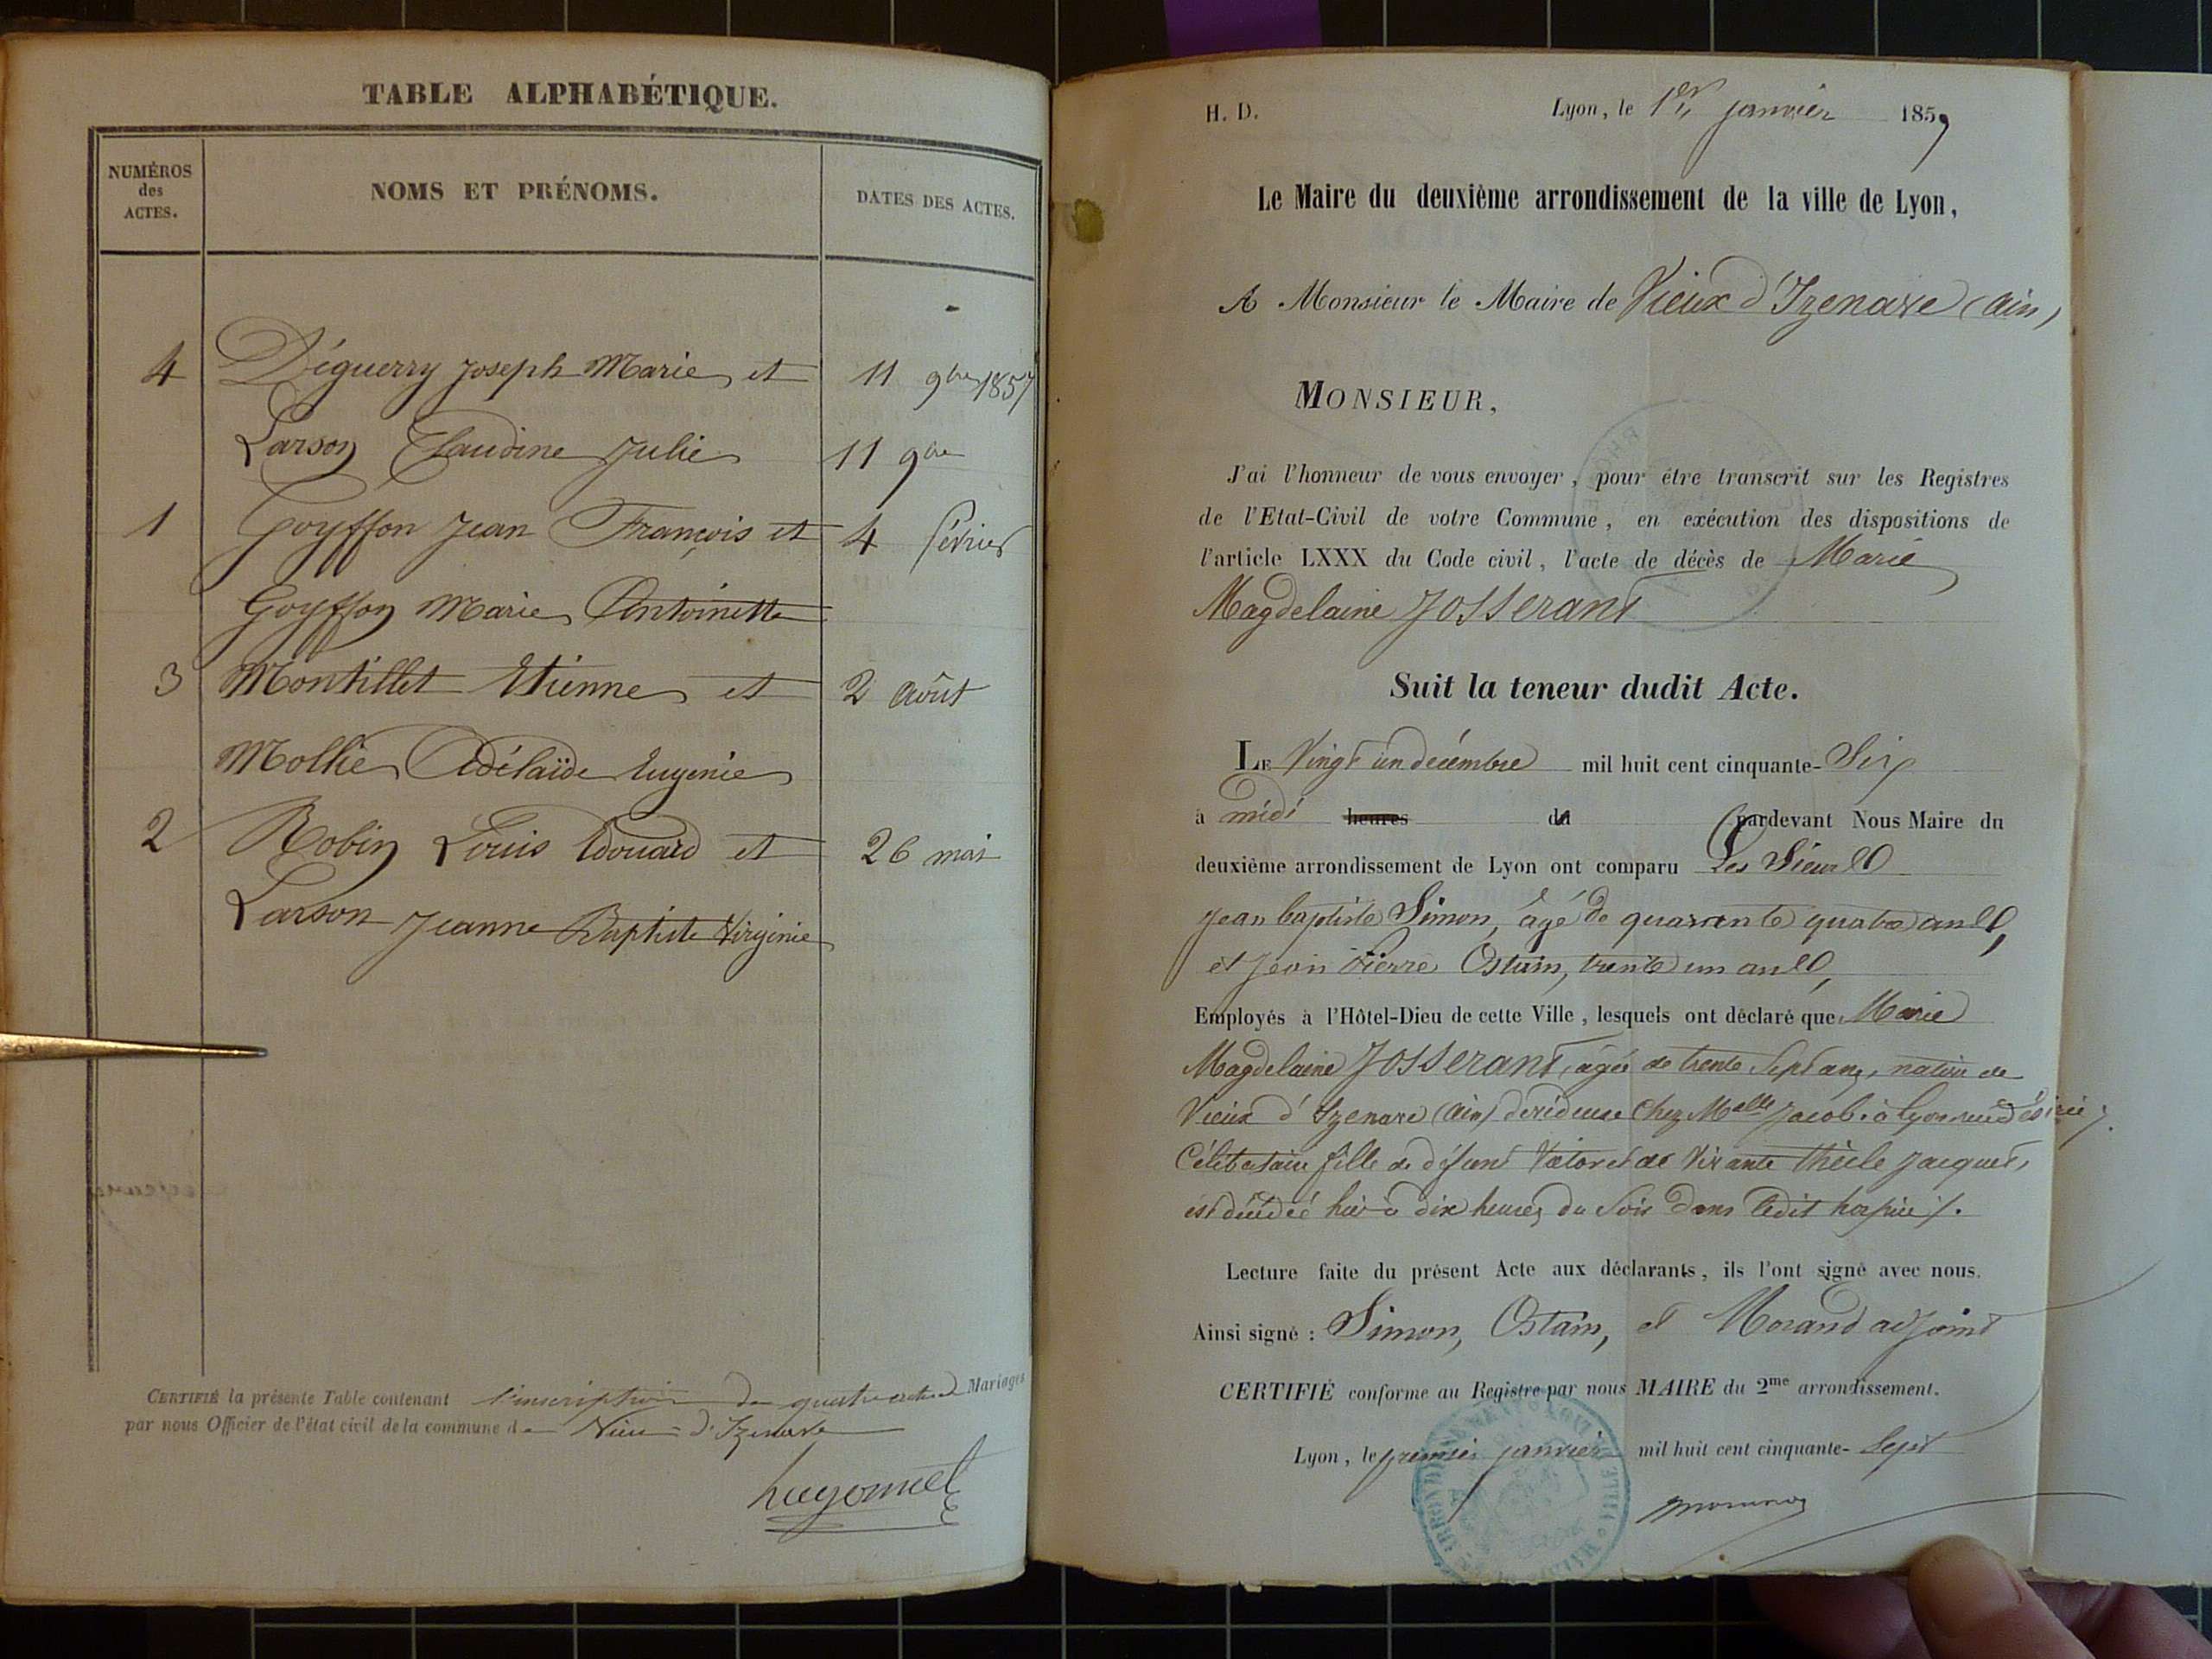 TABLE ALPHABÉTIQUE.
NUMÉROS
des
ACTES.
NOMS ET PRÉNOMS.
DATES DES ACTES.
4 Déguerry Joseph Marie et 11 9bre 1857
Larson Claudine Julie 11 9bre
1 Goyffon Jean François et 4 février
Goyffon Marie Antoinette
3 Montillet Etienne et 2 août
Mollie Adélaïde Eugenie
2 Robin Louis Edouard et 26 mai
Larson Jeanne Baptiste Virginie
CERTIFIÉ la présente Table contenant l'inscription de quatre actes de Mariages
par nous Officier de l'état civil de la commune de Vieu d'Izenave
hugonnet
H. D.
Lyon, le 1er janvier 1857
Le Maire du deuxième arrondissement de la ville de Lyon,
A Monsieur le Maire de Vieux d'Izenave (ain)
MONSIEUR,
J'ai l'honneur de vous envoyer, pour être transcrit sur les Registres
de l'Etat-Civil de votre Commune, en exécution des dispositions de
l'article LXXX du Code civil, l'acte de décès de Marie
Magdelaine Josserant
Suit la teneur dudit Acte.
LE Vingt un décembre mil huit cent cinquante-Six
à midi heures du pardevant Nous Maire du
deuxième arrondissement de Lyon ont comparu Les Sieurs
Jean baptiste Simon, âgé de quarante quatre ans,
et Jean Pierre Ostain, trente un ans,
Employés à l'Hôtel-Dieu de cette Ville, lesquels ont déclaré que Marie
Magdelaine Josserant, agée de trente Sept ans, native de
Vieux d'Izenave (ain) dévideuse chez Melle Jacob à Lyon rue
Célibataire fille de défunt et de Vivante Thècle Jacquet,
est décédée hier à dix heures du Soir dans ledit hospice /.
Lecture faite du présent Acte aux déclarants, ils l'ont signé avec nous.
Ainsi signé : Simon, Ostain, et Morand adjoint
CERTIFIÉ conforme au Registre par nous MAIRE du 2me arrondissement.
Lyon, le premier janvier mil huit cent cinquante-Sept